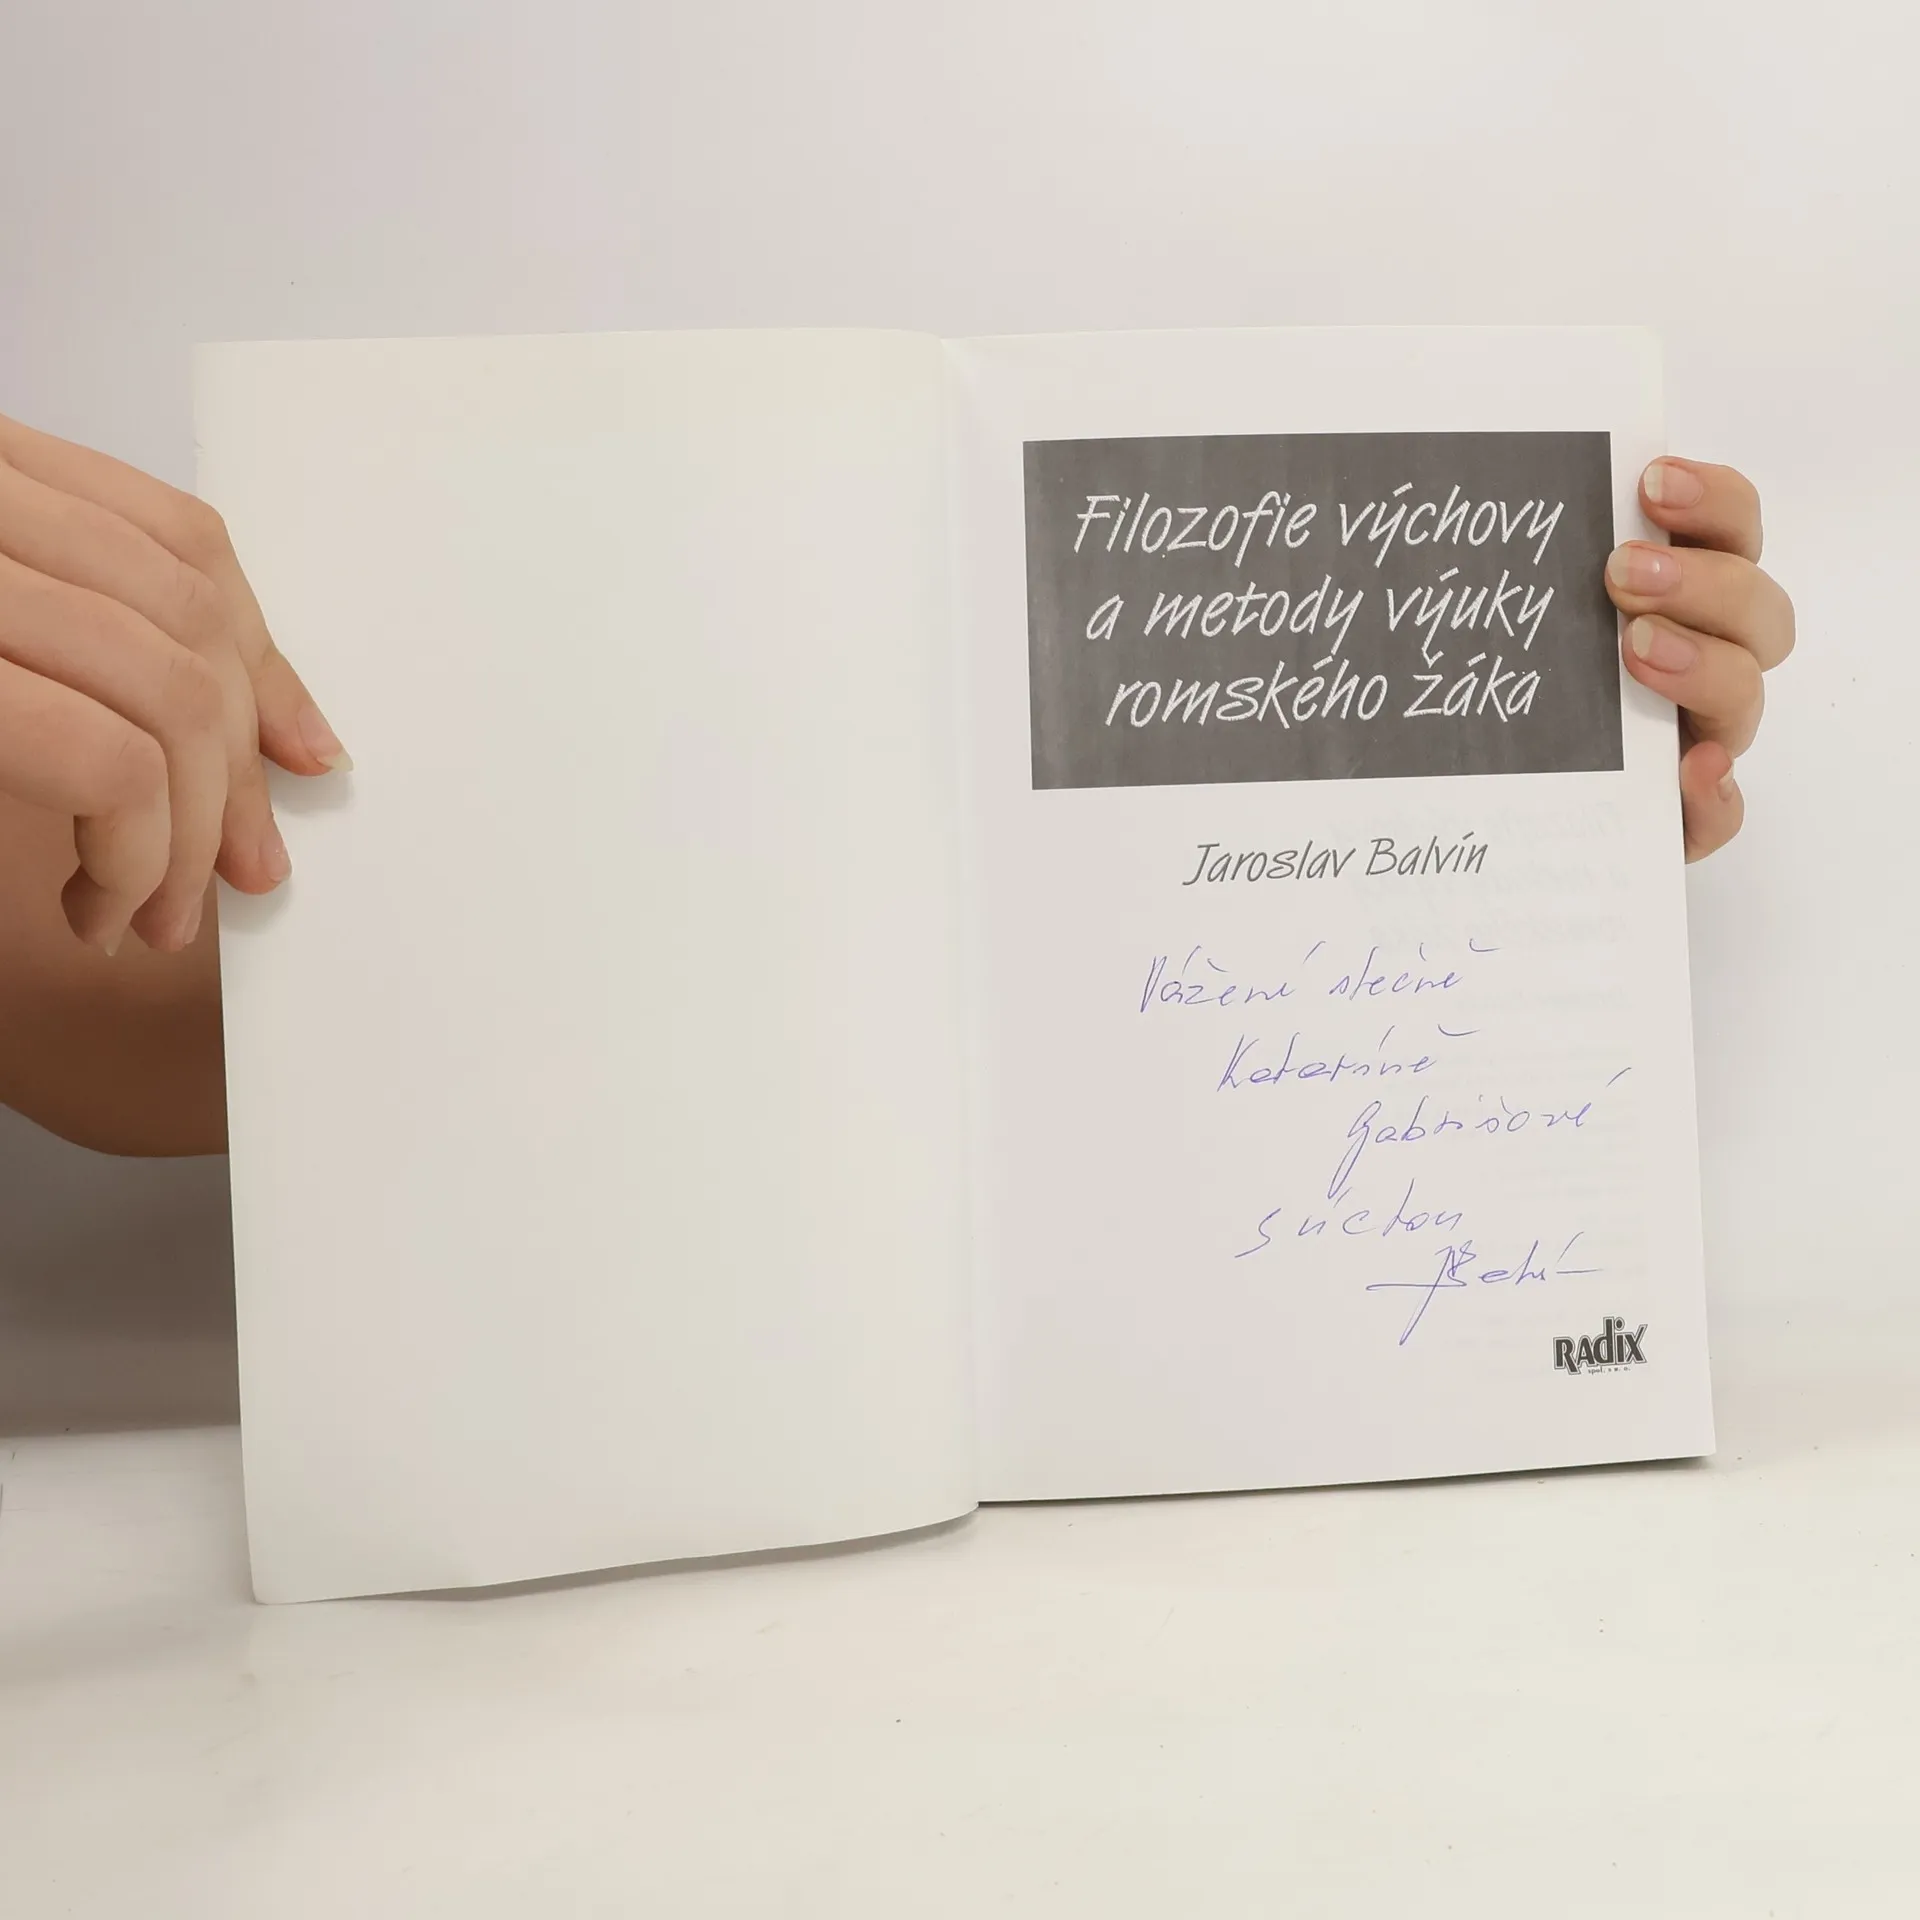 Filozofie výchovy
a metody výuky
romského žáka
Jaroslav Balvín
Vážené slečně
Kataríně
Gabrišové
s úctou
RADIX
spol. s r. o.